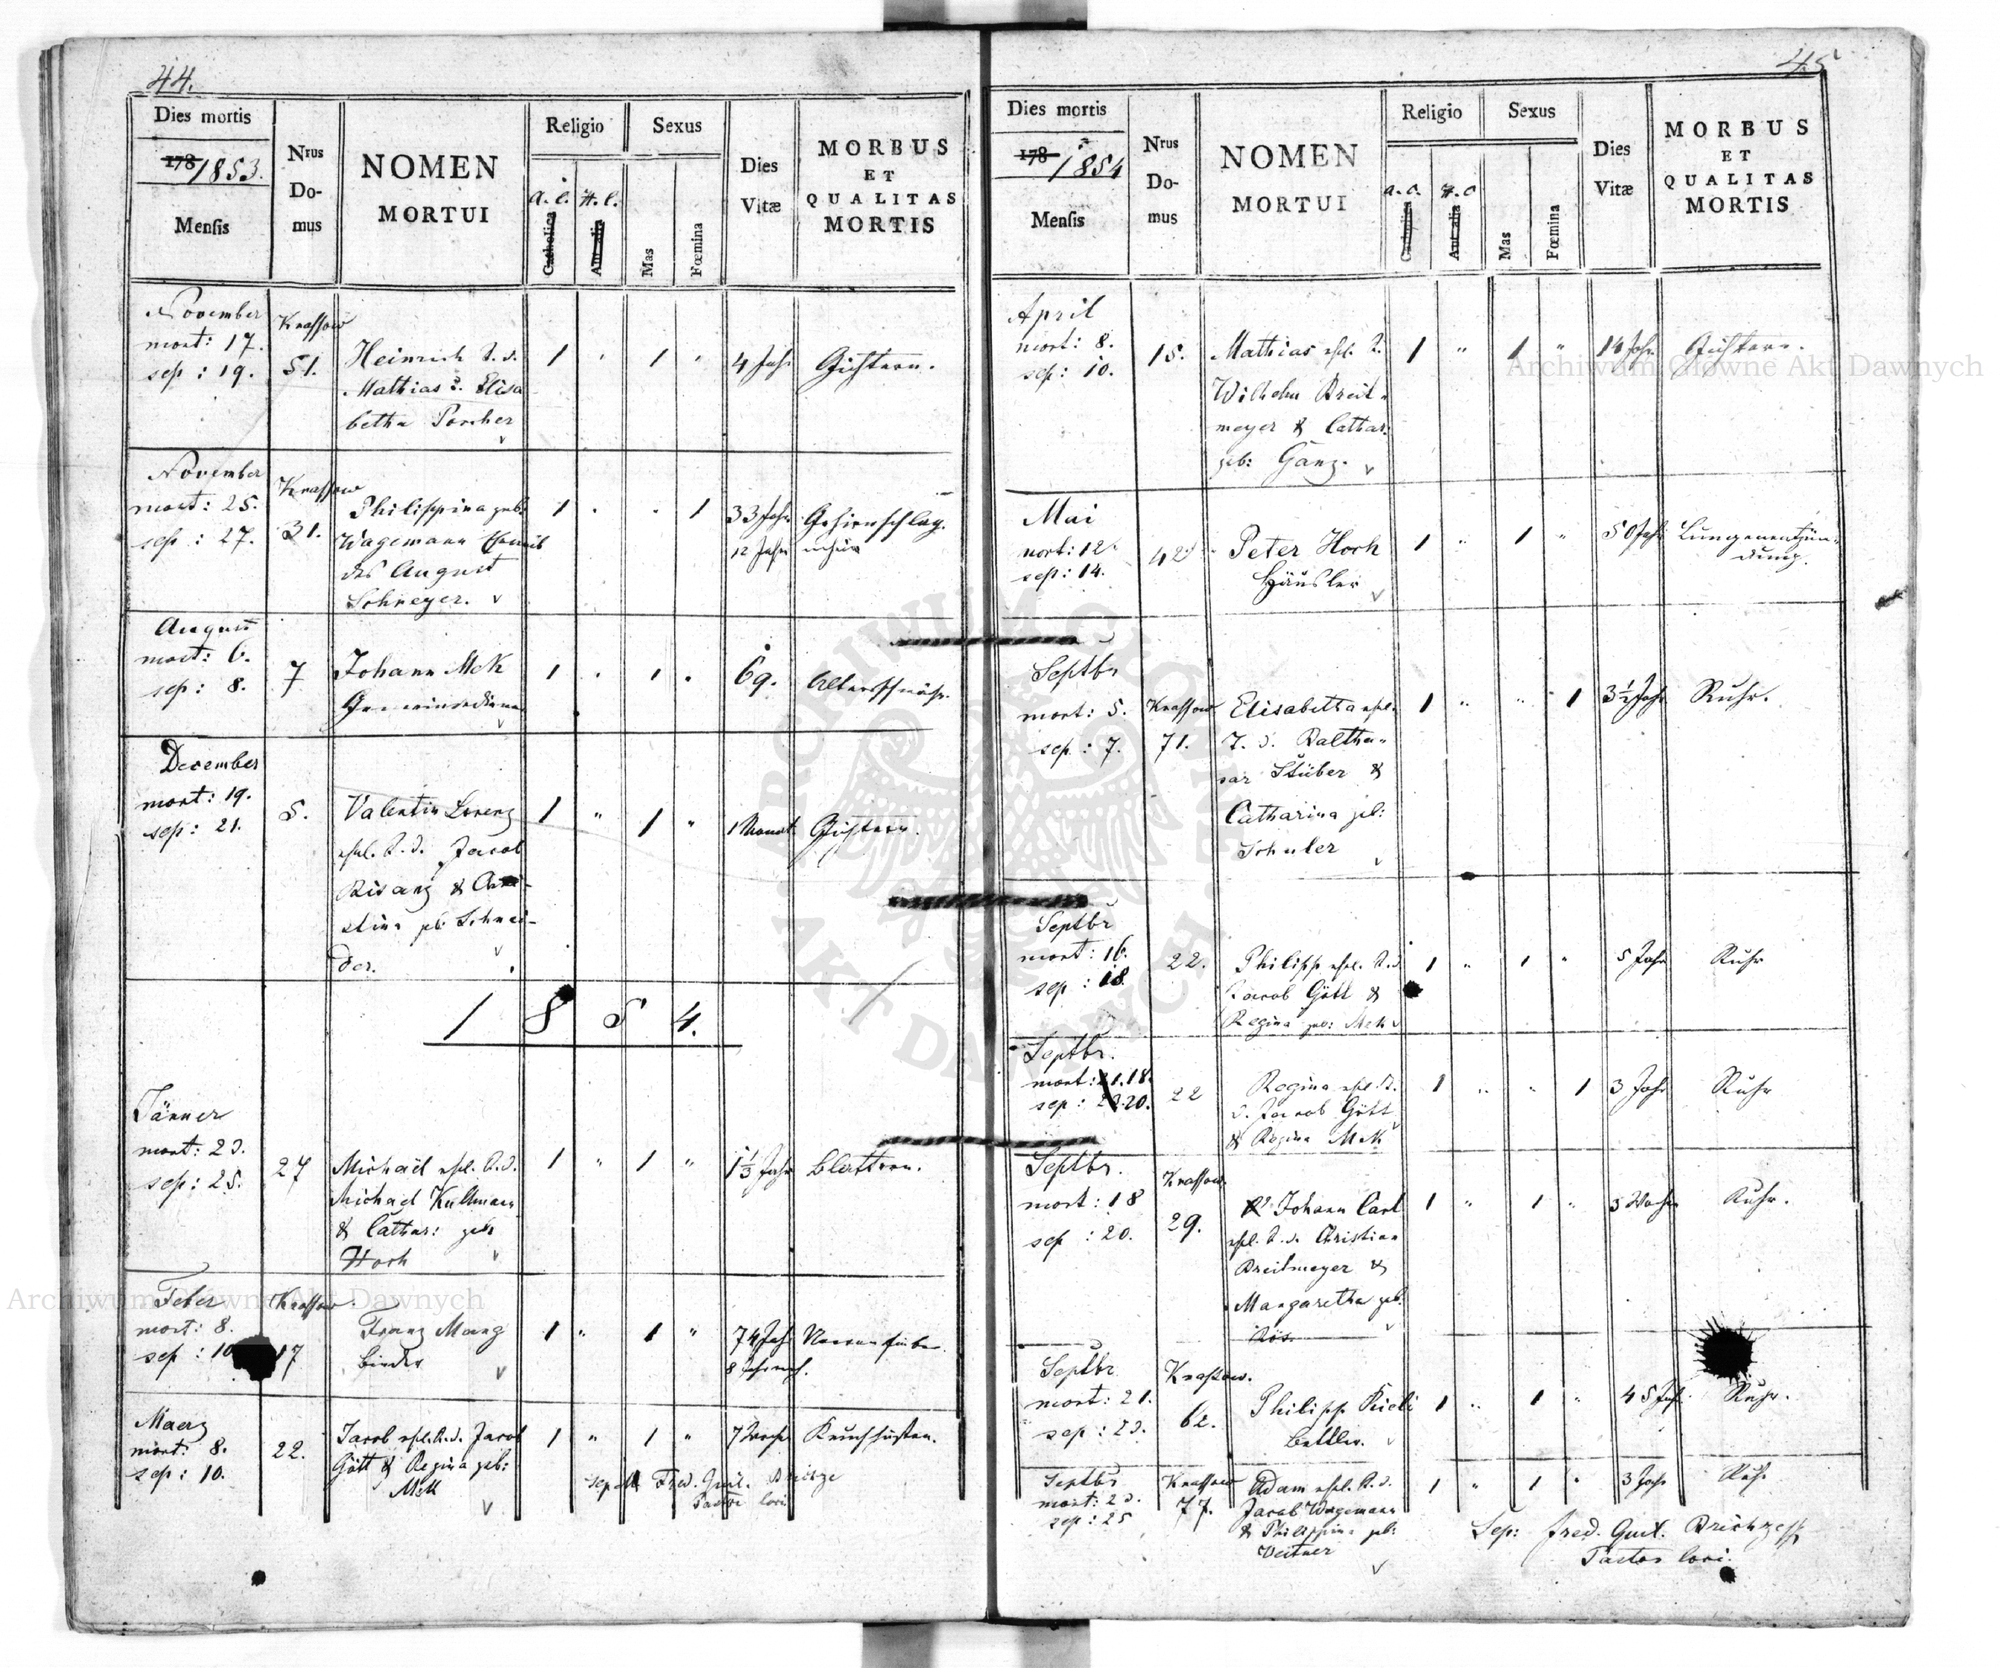 44.
Dies mortis
178 1853.
Mensis
Nrus Do- mus
NOMEN MORTUI
Religio
a. c. H. c.
Catholica
Aut alia
Sexus
Mas
Fœmina
Dies Vitæ
MORBUS ET QUALITAS MORTIS
November
mort: 17.
sep: 19.
Krassow
51.
Heinrich S. d.
Mathias & Elisa
betha Porcher
1 1
4 Jahr
November
mort: 25.
sep: 27.
Krassow
31.
Philippina geb:
Wagemann
des August
Schweyer.
1 1
33 Jahr
12 Jahr
Gehirnschlag.
August
mort: 6.
sep: 8.
7
Johann Mck
Gemeindediener
1 1
69.
December
mort: 19.
sep: 21.
5.
Valentin Lorenz
ehel. S. d. Jacob
Bisanz & Chri-
stina geb: Schnei-
der.
1 " 1 "
1 Monat
1854.
Jänner
mort: 23.
sep: 25.
27
Michael ehel. S. d.
Michael Kullmann
& Cathar: geb
Hoch
1 " 1 "
1⅓ Jahr
Blattern.
Feber
mort: 8.
sep: 10
Krassow
17
Franz Mang
Binder
1 " 1 "
74 Jahr
Nervenfieber.
Maerz
mort: 8.
sep: 10.
22.
Jacob ehel. S. d. Jacob
Gött & Regina geb:
Mck
1 " 1 "
7 Woche
Keuchhusten.
Fred. Guil.
Pastor loci
45
Dies mortis
178 1854
Mensis
Nrus Do- mus
NOMEN MORTUI
Religio
a. c. H. c
Catholica
Aut alia
Sexus
Mas
Fœmina
Dies Vitæ
MORBUS ET QUALITAS MORTIS
April
mort: 8.
sep: 10.
15.
Mathias ehel. S.
Wilhelm Breit-
meyer & Cathar:
geb: Ganz.
1 " 1 "
14 Jahr
Mai
mort: 12.
sep: 14.
42
Peter Hoch
Häusler
1 " 1 "
50 Jahr
Lungenentzün-
dung.
Septbr
mort: 5.
sep: 7.
Krassow
71.
Elisabetta ehel.
T. d. Baltha-
sar Stüber &
Catharina geb:
Schuler
1 " " 1
3½ Jahr
Ruhr.
Septbr
mort: 16.
sep: 18.
22.
Philipp ehel. S. d.
Jacob Gött &
Regina geb: Mck
1 " 1 "
5 Jahr
Ruhr
Septbr.
mort: 21. 18.
sep: 23. 20.
22
Regina ehel. T.
d. Jacob Gött
& Regina Mck
1 " " 1
3 Jahr
Ruhr
Septbr.
mort: 18
sep: 20.
Krassow.
29.
Johann Carl
ehel. S. d. Christian
Breitmeyer &
Margaretha geb:
Rös.
1 " 1 "
3 Woche
Ruhr.
Septbr
mort: 21.
sep: 23.
Krassow.
62.
Philipp
Bettler.
1 " 1 "
45 Jahr
Ruhr.
Septbr
mort: 23.
sep: 25
Krassow
77.
Adam ehel. S. d.
Jacob Wagemann
& Philippina geb:
1 " 1 "
3 Jahr
Ruhr
Sep: Fred. Guil.
Pastor loci.
Archiwum Główne Akt Dawnych
Archiwum Główne Akt Dawnych
ARCHIWUM GŁÓWNE AKT DAWNYCH